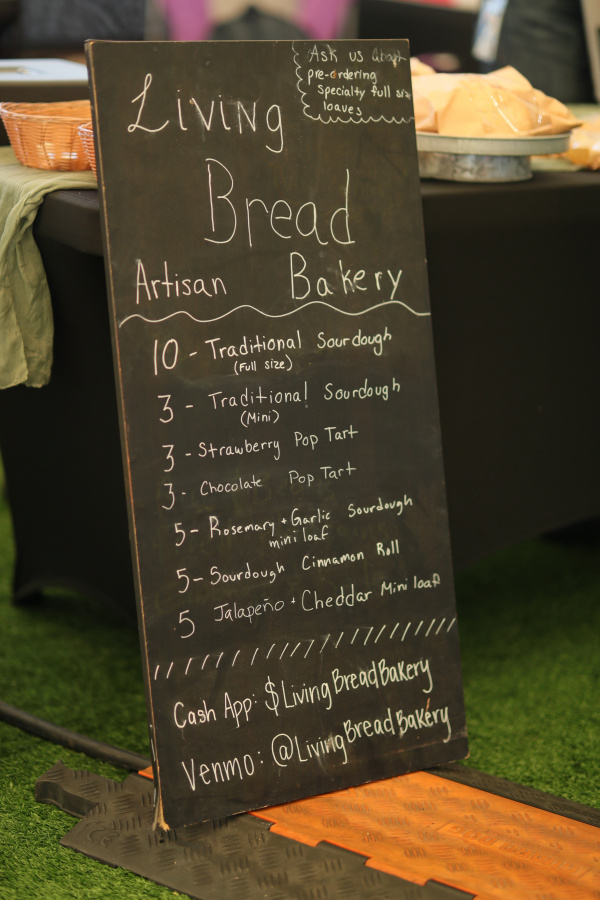 Ask us about
pre-ordering
Specialty full size
loaves
Living
Bread
Artisan Bakery
10 - Traditional Sourdough
(Full size)
3 - Traditional Sourdough
(Mini)
3 - Strawberry Pop Tart
3 - Chocolate Pop Tart
5 - Rosemary + Garlic Sourdough
mini loaf
5 - Sourdough Cinnamon Roll
5 Jalapeño + Cheddar Mini loaf
Cash App: $LivingBreadBakery
Venmo: @LivingBreadBakery